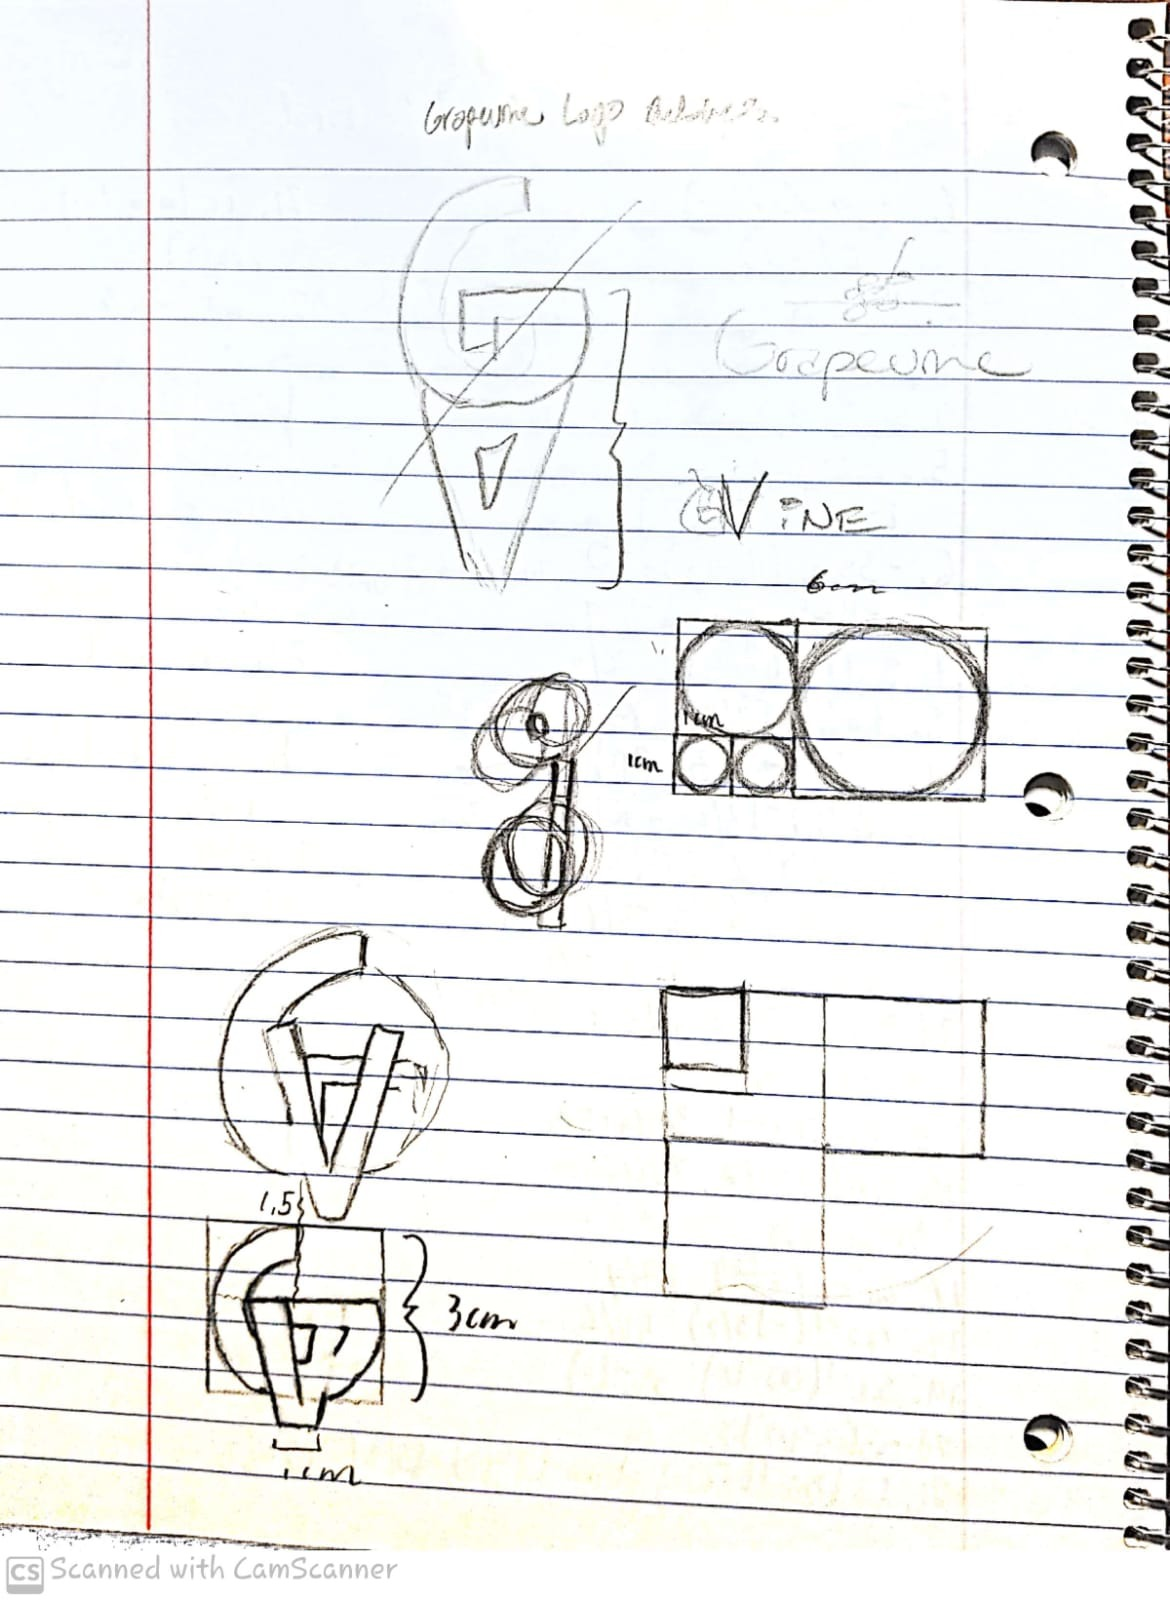 Grapevine Logo
Grapevine
GV iNE
6cm
1cm
1cm
1,5
3cm
1cm
CS Scanned with CamScanner